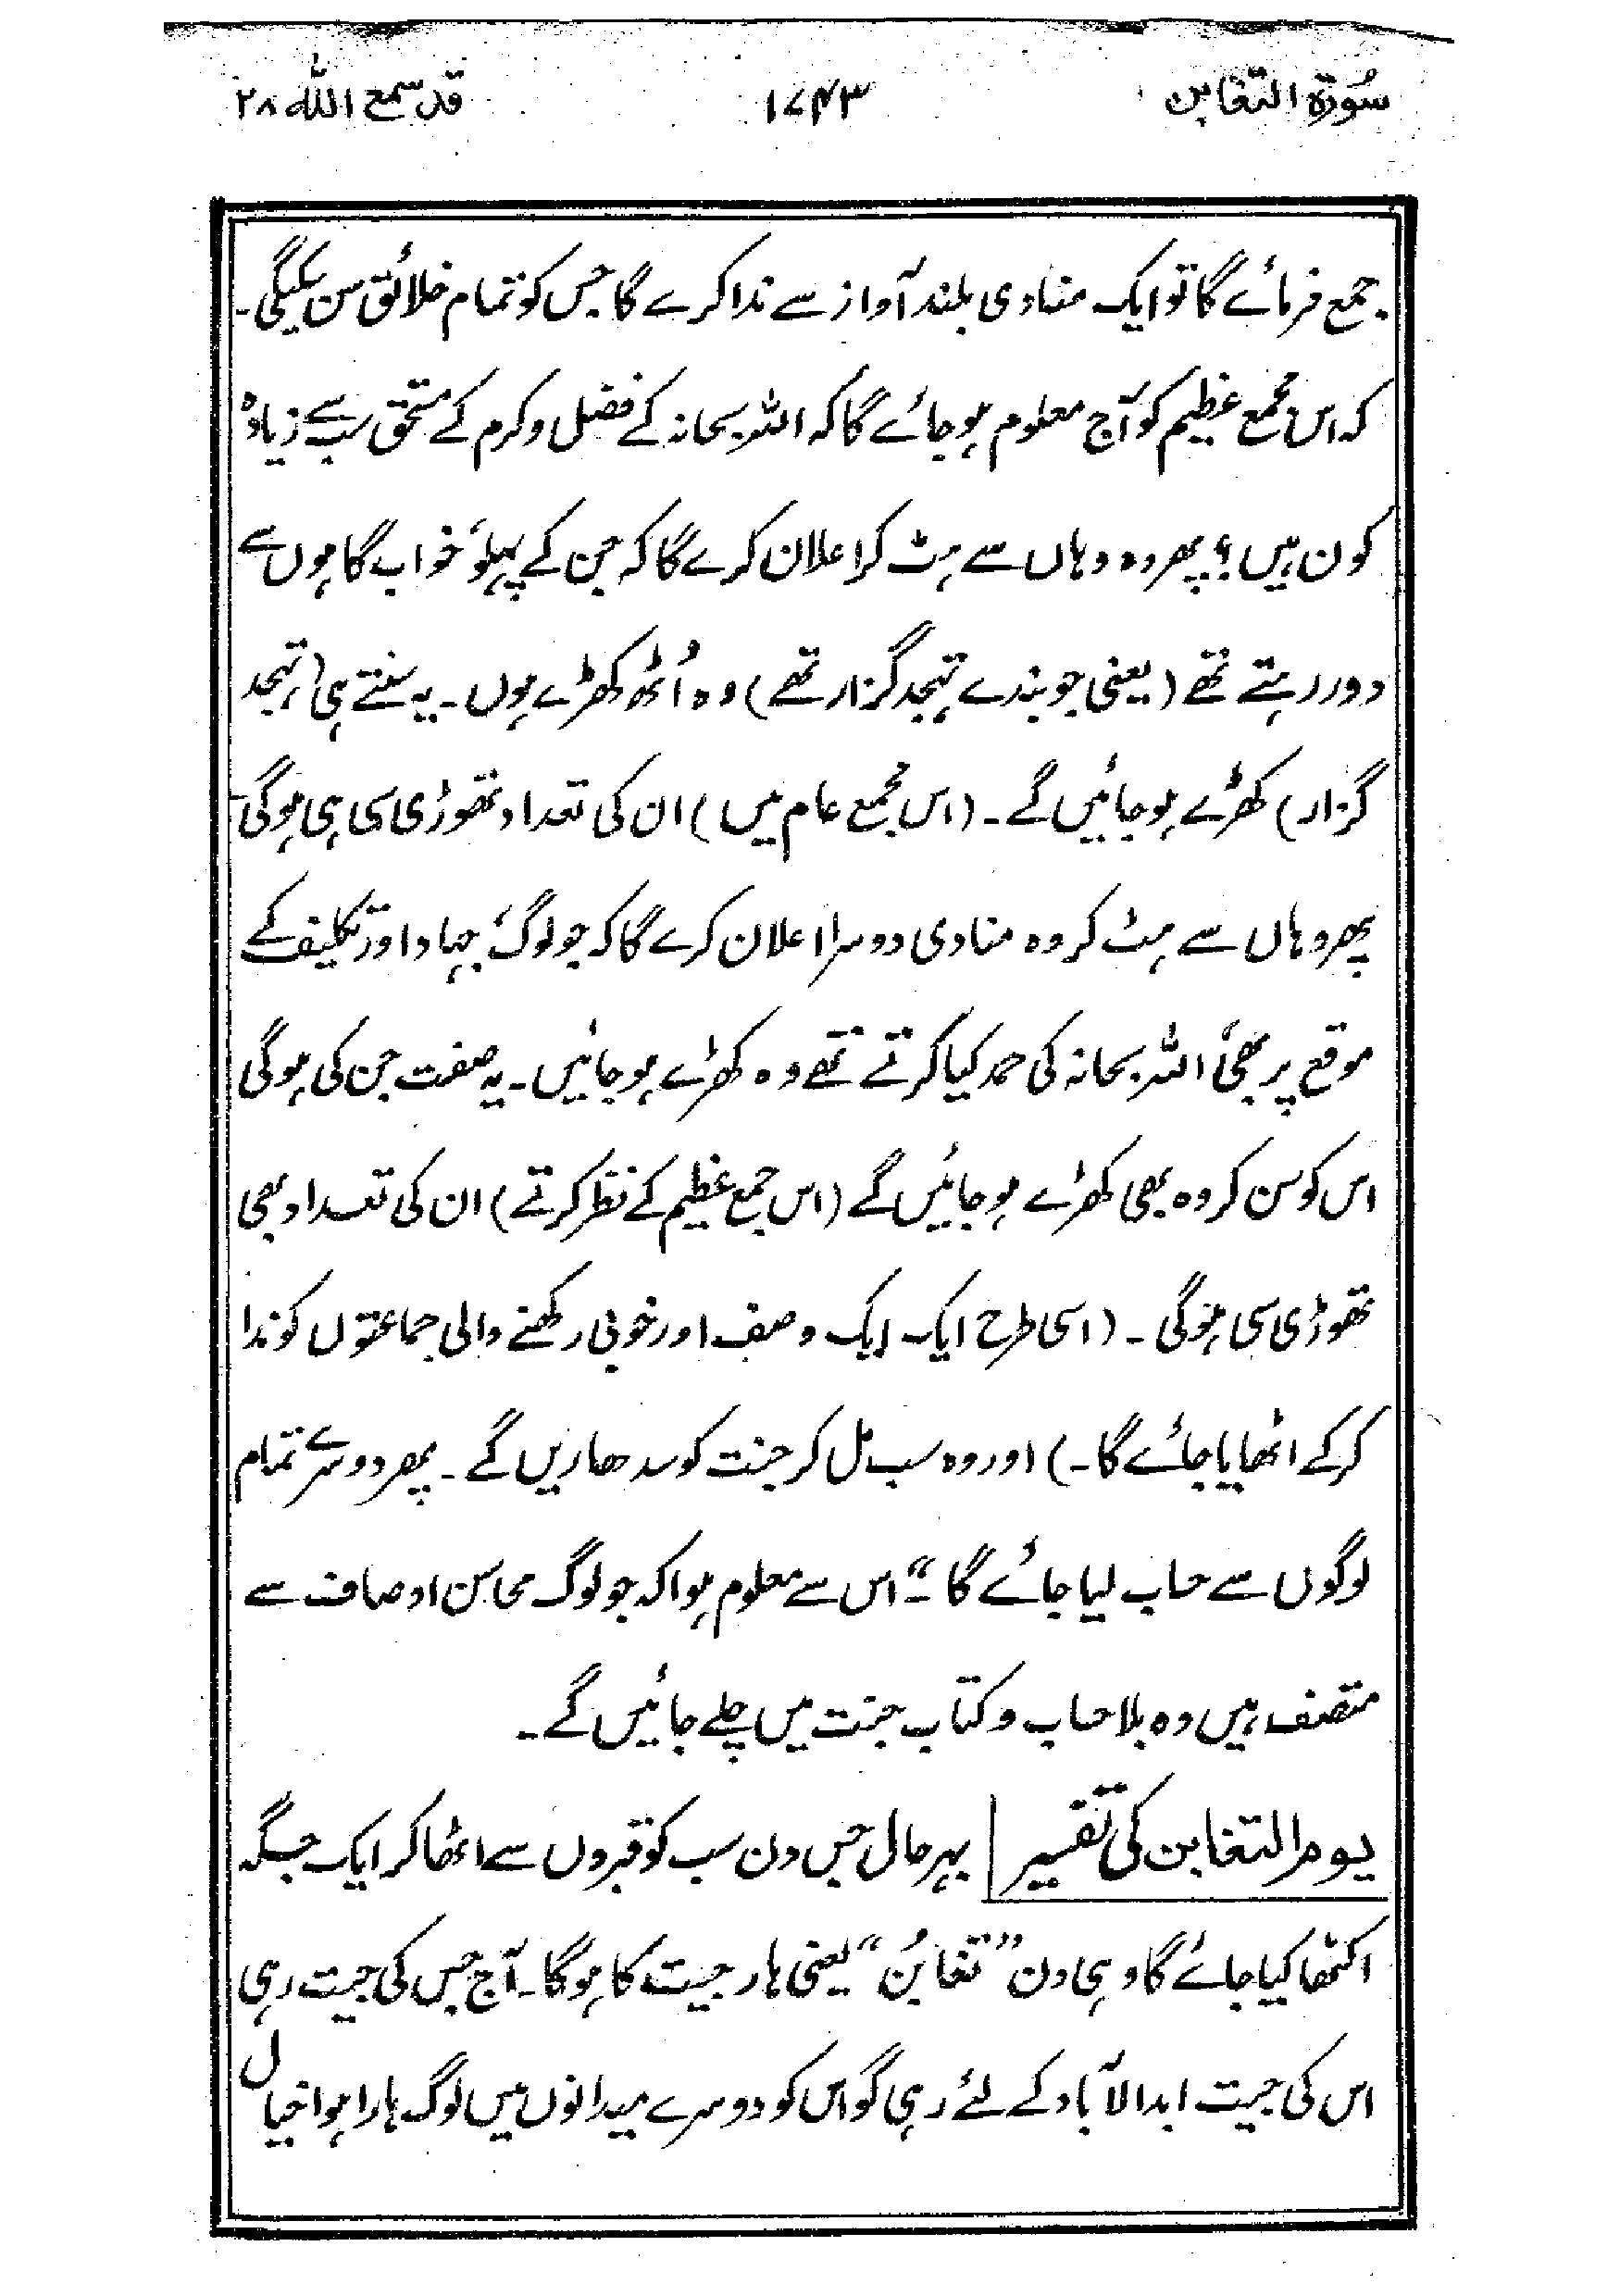 سُورَۃ التغابن ۱۷۴۳ قد سمع اللہ ۲۸
جمع فرمائے گا تو ایک منادی بلند آواز سے ندا کرے گا جس کو تمام خلائق سن سکیگی۔
کہ اس مجمع عظیم کو آج معلوم ہو جائے گا کہ اللہ سبحانہ کے فضل و کرم کے مستحق سب سے زیادہ
کون ہیں؟ پھر وہ وہاں سے ہٹ کر اعلان کرے گا کہ جن کے پہلو، خواب گاہوں سے
دور رہتے تھے (یعنی جو بندے تہجد گزار تھے) وہ اُٹھ کھڑے ہوں۔ یہ سنتے ہی (تہجد
گزار) کھڑے ہو جائیں گے۔ (اس مجمع عام میں) ان کی تعداد تھوڑی سی ہی ہوگی۔
پھر وہاں سے ہٹ کر وہ منادی دوسرا اعلان کرے گا کہ جو لوگ، جہاد اور تکلیف کے
موقع پر بھی، اللہ سبحانہ کی حمد کیا کرتے تھے وہ کھڑے ہو جائیں۔ یہ صفت جن کی ہوگی
اس کو سن کر وہ بھی کھڑے ہو جائیں گے (اس جمع عظیم کے نظر کرتے) ان کی تعداد بھی
تھوڑی سی ہوگی۔ (اسی طرح ایک ایک وصف اور خوبی رکھنے والی جماعتوں کو ندا
کر کے اٹھایا جائے گا۔) اور وہ سب مل کر جنت کو سدھاریں گے۔ پھر دوسرے تمام
لوگوں سے حساب لیا جائے گا۔" اس سے معلوم ہوا کہ جو لوگ محاسن اوصاف سے
متصف ہیں وہ بلا حساب و کتاب جنت میں چلے جائیں گے۔
یوم التغابن کی تفسیر | بہر حال جس دن سب کو قبروں سے اٹھا کر ایک جگہ
اکٹھا کیا جائے گا وہی دن "تغابُن" یعنی ہار جیت کا ہوگا۔ آج جس کی جیت رہی
اس کی جیت ابد الآباد کے لئے رہی گو اس کو دوسرے میدانوں میں لوگ ہارا ہوا خیال